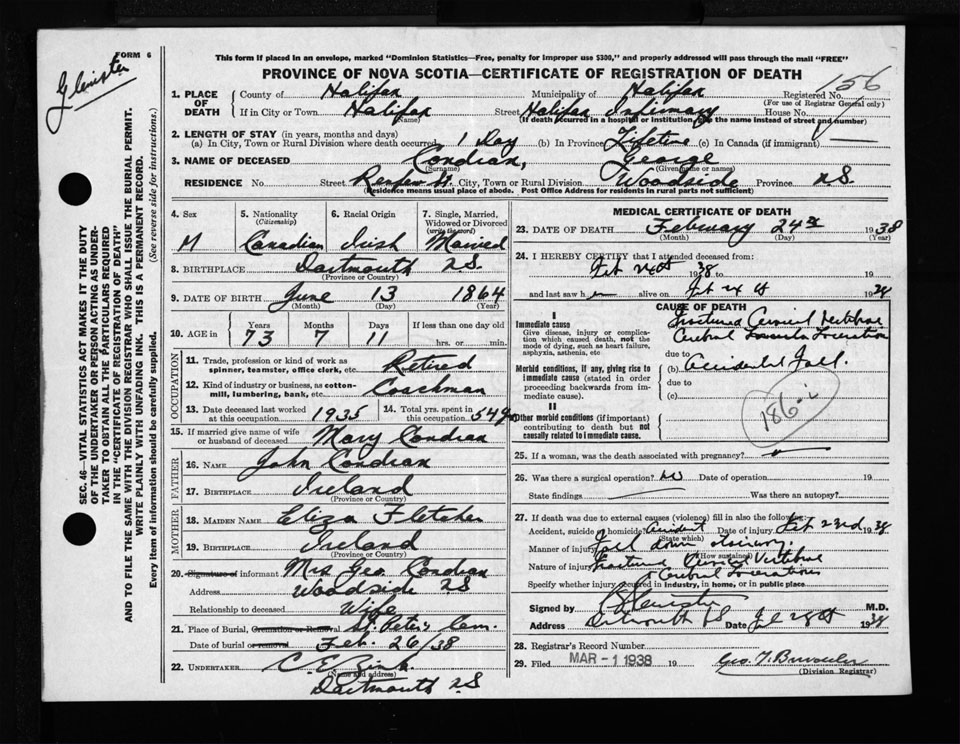 FORM 6
Glenister
This form if placed in an envelope, marked "Dominion Statistics—Free, penalty for improper use $300," and properly addressed will pass through the mail "FREE"
PROVINCE OF NOVA SCOTIA—CERTIFICATE OF REGISTRATION OF DEATH
156
1. PLACE OF DEATH County of Halifax Municipality of Halifax Registered No.
(For use of Registrar General only)
If in City or Town Halifax Street Halifax Infirmary House No.
(Name) (If death occurred in a hospital or institution, give the name instead of street and number)
2. LENGTH OF STAY (in years, months and days)
(a) In City, Town or Rural Division where death occurred 1 Day (b) In Province Lifetime (c) In Canada (if immigrant) —
3. NAME OF DECEASED Condran, George
(Surname) (Given name or names)
RESIDENCE No. Street Renfrew St. City, Town or Rural Division Woodside Province N.S.
(Residence means usual place of abode. Post Office Address for residents in rural parts not sufficient)
4. Sex 5. Nationality (Citizenship) 6. Racial Origin 7. Single, Married, Widowed or Divorced (write the word)
M Canadian Irish Married
8. BIRTHPLACE Dartmouth N.S.
(Province or Country)
9. DATE OF BIRTH June 13 1864
(Month) (Day) (Year)
10. AGE in Years Months Days If less than one day old
73 7 11 hrs. or min.
OCCUPATION
11. Trade, profession or kind of work as spinner, teamster, office clerk, etc. Retired
12. Kind of industry or business, as cotton-mill, lumbering, bank, etc. Coachman
13. Date deceased last worked at this occupation 1935 14. Total yrs. spent in this occupation 54 yrs
15. If married give name of wife or husband of deceased Mary Condran
FATHER
16. NAME John Condran
17. BIRTHPLACE Ireland
(Province or Country)
MOTHER
18. MAIDEN NAME Eliza Fletcher
19. BIRTHPLACE Ireland
(Province or Country)
20. Signature of informant Mrs Geo. Condran
Address Woodside N.S
Relationship to deceased Wife
21. Place of Burial, Cremation or Removal St. Peter's Cem.
Date of burial or removal Feb. 26/38
22. UNDERTAKER C E
(Name and address)
Dartmouth N.S
MEDICAL CERTIFICATE OF DEATH
23. DATE OF DEATH February 24th 1938
(Month) (Day) (Year)
24. I HEREBY CERTIFY that I attended deceased from:
Feb 24th 1938 to 19
and last saw h im alive on Feb 24th 1938
CAUSE OF DEATH
I
Immediate cause
Give disease, injury or complication which caused death, not the mode of dying, such as heart failure, asphyxia, asthenia, etc
Fractured Cervical Vertebrae
Cerebral Laceration
due to
Accidental Fall.
Morbid conditions, if any, giving rise to immediate cause (stated in order proceeding backwards from immediate cause).
(b)
due to
(c)
186-i
II
Other morbid conditions (if important) contributing to death but not causally related to immediate cause.
25. If a woman, was the death associated with pregnancy?
26. Was there a surgical operation? No Date of operation 19
State findings Was there an autopsy?
27. If death was due to external causes (violence) fill in also the following:
Accident, suicide or homicide? Accident Date of injury Feb 23rd 1938
(State which)
Manner of injury Fell down stairway.
(How sustained)
Nature of injury Fractured Cervical Vertebrae
Cerebral Lacerations
Specify whether injury occurred in industry, in home, or in public place
Signed by Glenister M.D.
Address Dartmouth NS Date Feb 28th 1938
28. Registrar's Record Number
29. Filed MAR - 1 1938 19
(Division Registrar)
SEC. 46—VITAL STATISTICS ACT MAKES IT THE DUTY
OF THE UNDERTAKER OR PERSON ACTING AS UNDER-
TAKER TO OBTAIN ALL THE PARTICULARS REQUIRED
IN THE "CERTIFICATE OF REGISTRATION OF DEATH"
AND TO FILE THE SAME WITH THE DIVISION REGISTRAR WHO SHALL ISSUE THE BURIAL PERMIT.
WRITE PLAINLY WITH UNFADING INK. THIS IS A PERMANENT RECORD.
Every item of information should be carefully supplied. (See reverse side for instructions.)